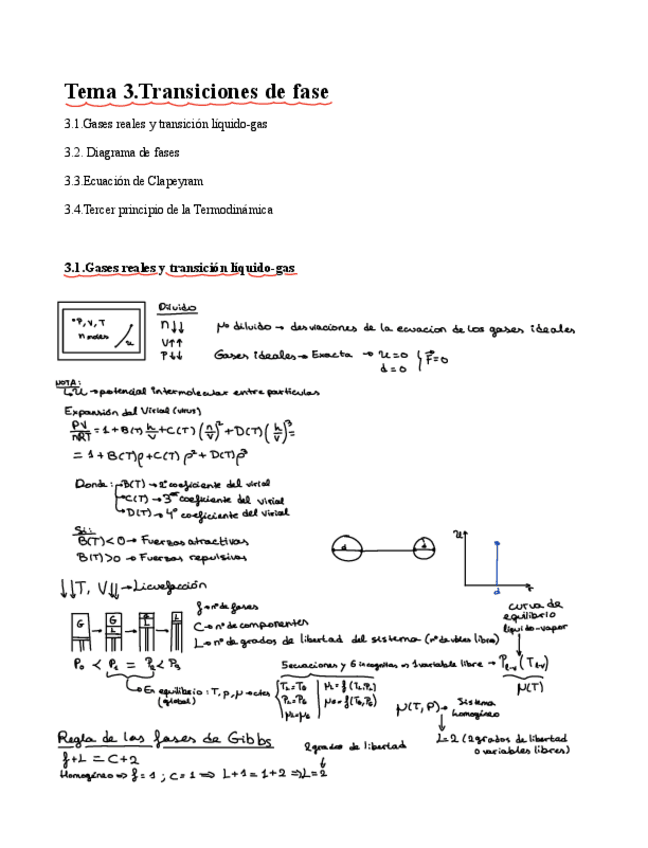 Tema 3.Transiciones de fase
3.1.Gases reales y transición líquido-gas
3.2. Diagrama de fases
3.3.Ecuación de Clapeyram
3.4.Tercer principio de la Termodinámica
3.1.Gases reales y transición líquido-gas
Diluido
•P, V, T
n moles
u
n↓↓
V↑↑
P↓↓
No diluido → desviaciones de la ecuacion de los gases ideales
Gases ideales → Exacta → u=0
d=0
F⃗=0
NOTA:
↳u → potencial intermolecular entre partículas
Expansión del Virial (virus)
PV/nRT = 1 + B(T) n/V + C(T) (n/V)² + D(T) (n/V)³ =
= 1 + B(T)ρ + C(T) ρ² + D(T)ρ³
Donde: B(T) → 2º coeficiente del virial
C(T) → 3er coeficiente del virial
D(T) → 4º coeficiente del virial
Si:
B(T)<0 → Fuerzas atractivas
B(T)>0 → Fuerzas repulsivas
d d
u
r
d
↓↓T, V↓↓ → Licuefacción
G → G L → G L → L
f → nº de fases
C → nº de componentes
L → nº de grados de libertad del sistema (nº de vbles libres)
curva de
equilibrio
líquido-vapor
P₀ < P₁ = P₂ < P₃
5 ecuaciones y 6 incognitas → 1 variable libre → Pl-v (Tl-v)
μ(T)
En equilibrio: T, p, μ → ctes
(global)
TL = TG
PL = PG
μL = μG
μL = f (TL, PL)
μG = f (TG, PG)
μ(T, P) → Sistema
homogéneo
L=2 (2 grados de libertad
o variables libres)
Regla de las fases de Gibbs
f+L = C+2
2 grados de libertad
Homogéneo ⇒ f = 1 ; C = 1 ⇒ L+1 = 1+2 ⇒ L=2